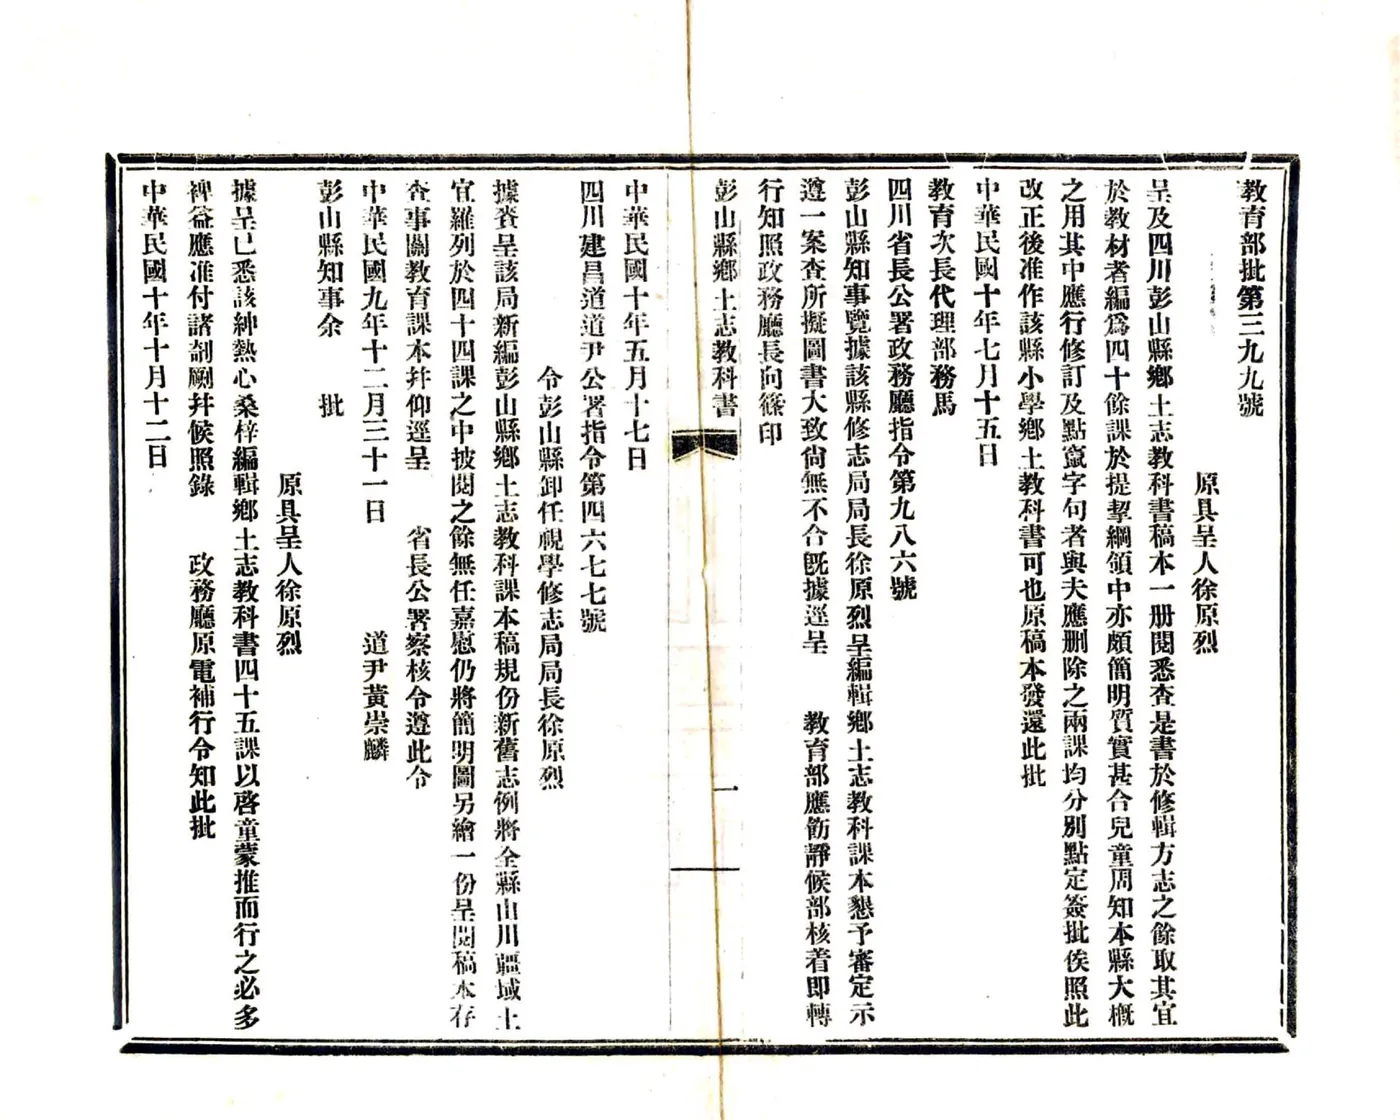 教育部批第三九九號
原具呈人徐原烈
呈及四川彭山縣鄉土志教科書稿本一册閱悉查是書於修輯方志之餘取其宜
於教材者編爲四十餘課於提挈綱領中亦頗簡明質實甚合兒童周知本縣大概
之用其中應行修訂及點竄字句者與夫應删除之兩課均分別點定簽批俟照此
改正後准作該縣小學鄉土教科書可也原稿本發還此批
中華民國十年七月十五日
教育次長代理部務馬
四川省長公署政務廳指令第九八六號
彭山縣知事覽據該縣修志局局長徐原烈呈編輯鄉土志教科課本懇予審定示
遵一案查所擬圖書大致尙無不合旣據逕呈　教育部應飭靜候部核着即轉
行知照政務廳長向篠印
彭山縣鄉土志教科書
一
中華民國十年五月十七日
四川建昌道道尹公署指令第四六七七號
令彭山縣卸任視學修志局局長徐原烈
據賫呈該局新編彭山縣鄉土志教科課本稿規份新舊志例將全縣山川疆域土
宜羅列於四十四課之中披閱之餘無任嘉慰仍將簡明圖另繪一份呈閱稿本存
查事關教育課本幷仰逕呈　省長公署察核令遵此令
中華民國九年十二月三十一日　道尹黃崇麟
彭山縣知事余　批
原具呈人徐原烈
據呈已悉該紳熱心桑梓編輯鄉土志教科書四十五課以啓童蒙推而行之必多
裨益應准付諸剞劂幷候照錄　政務廳原電補行令知此批
中華民國十年十月十二日